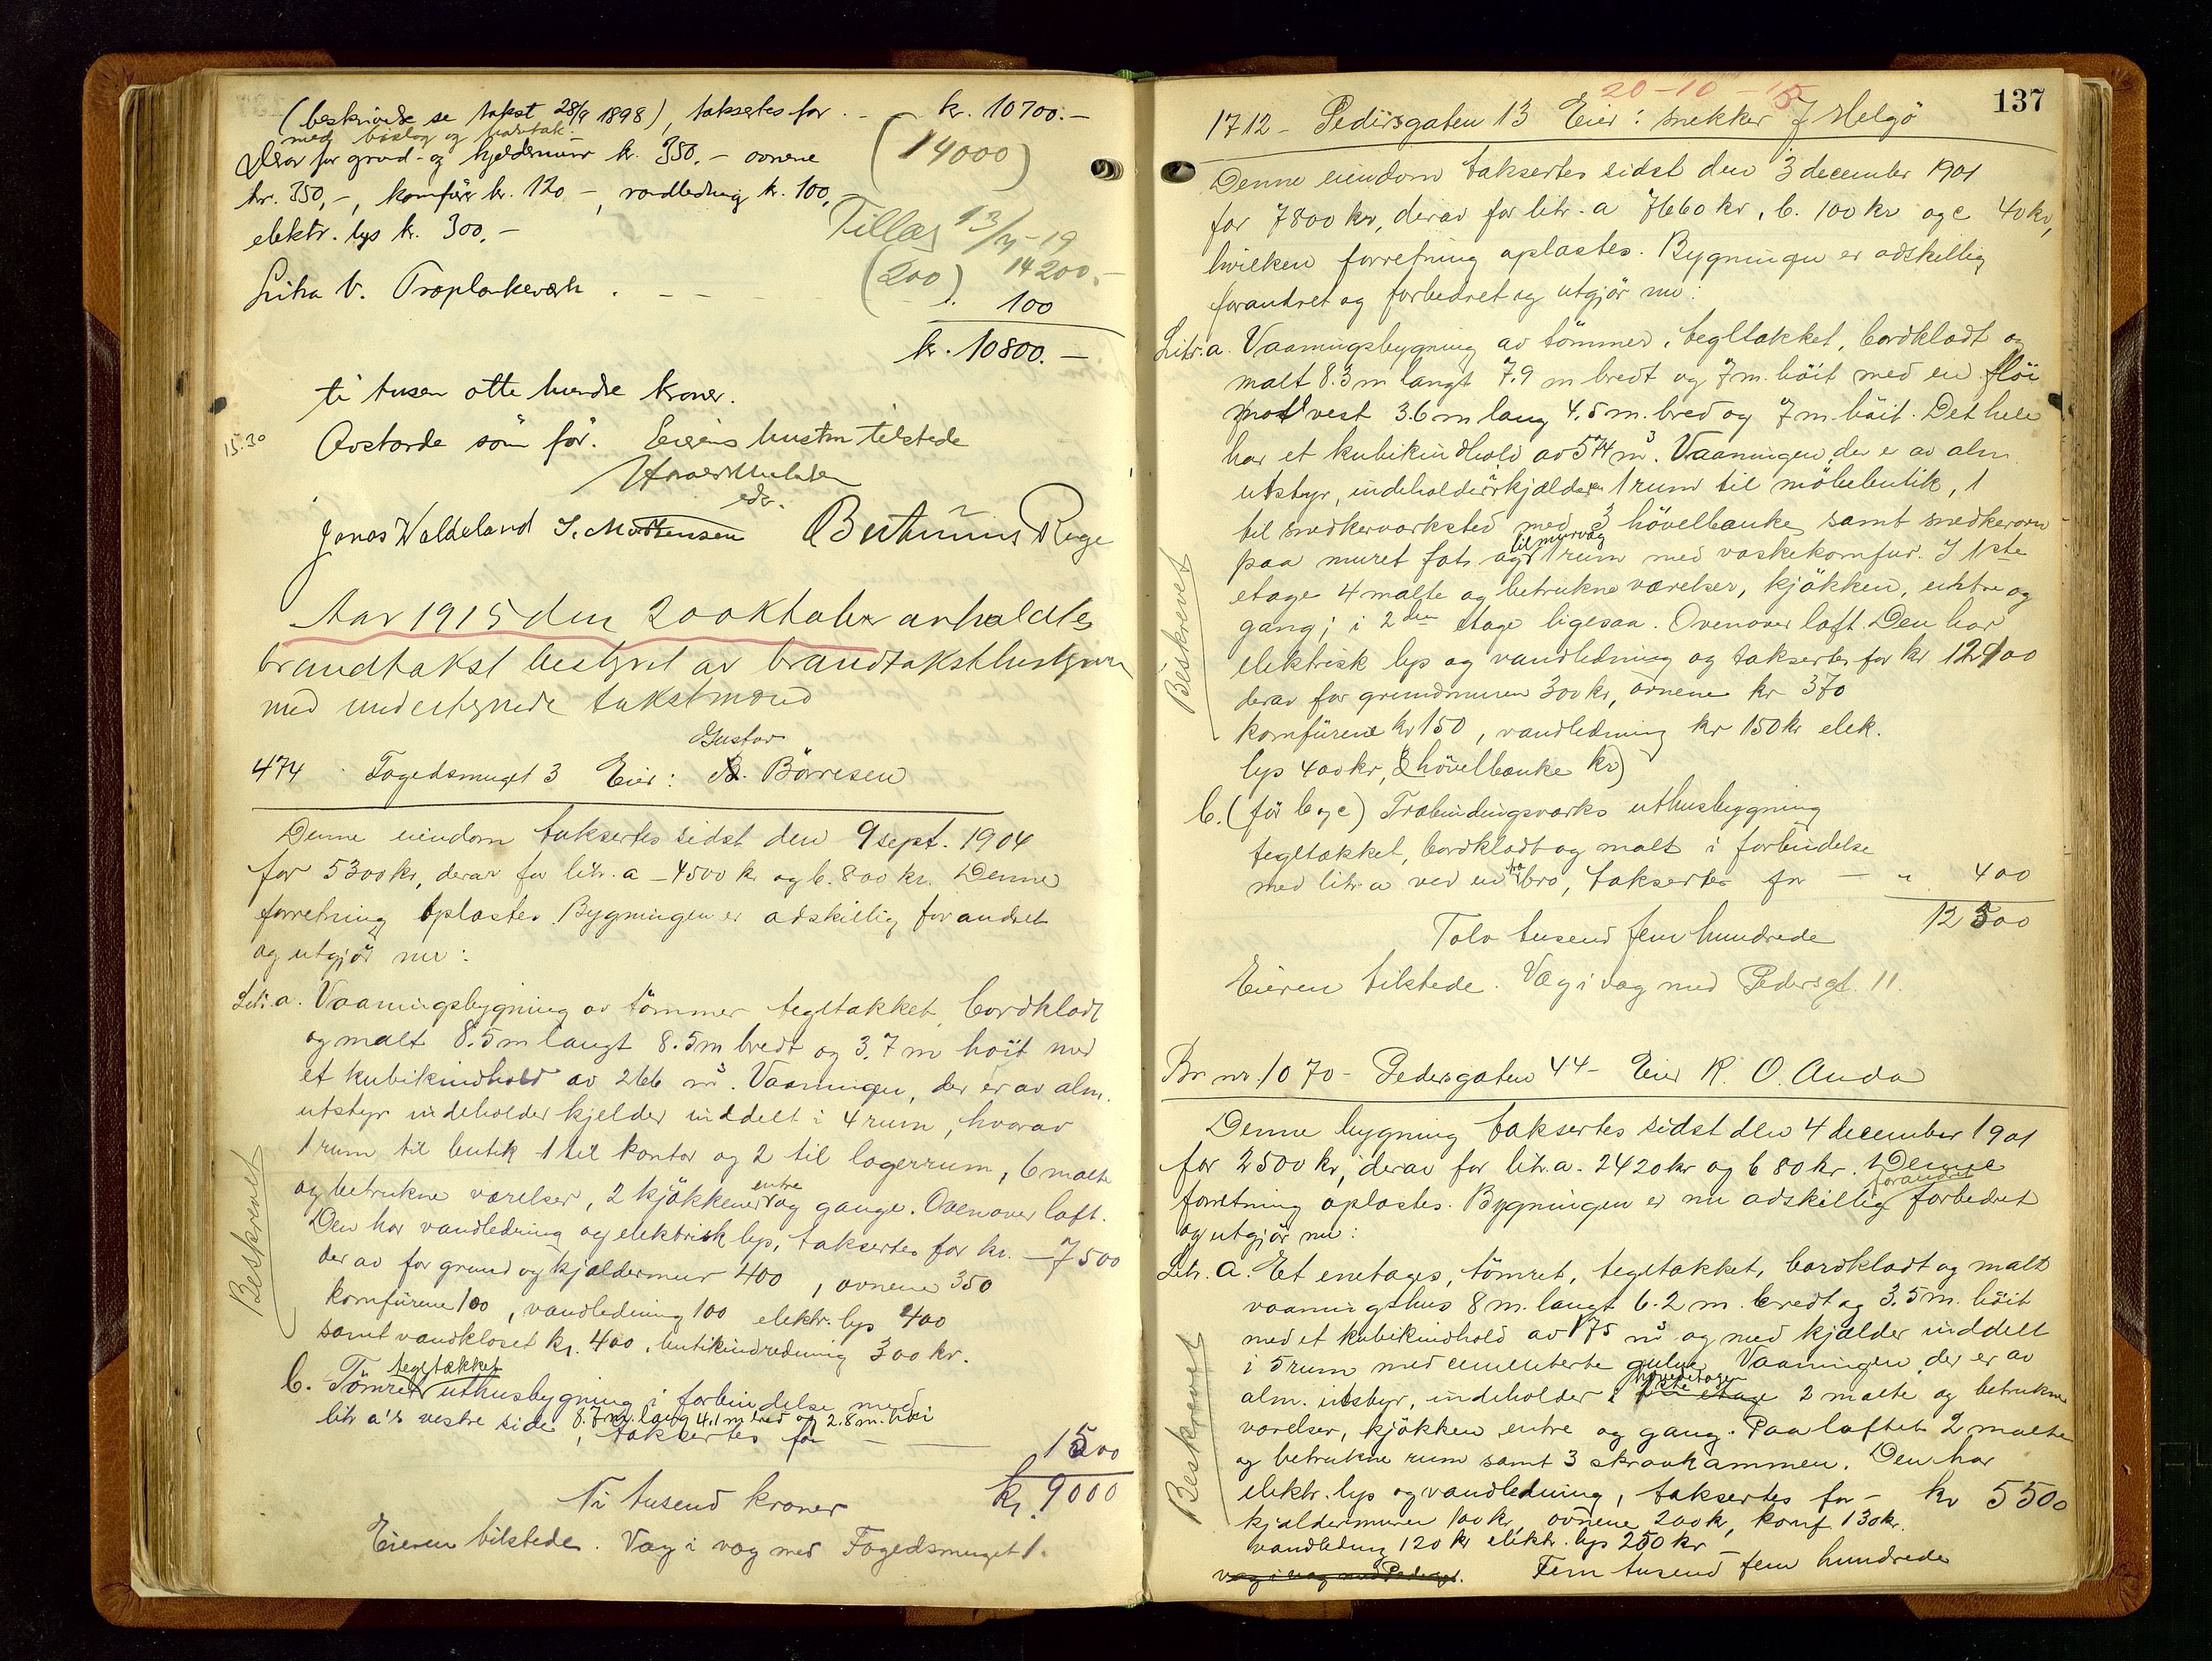 (beskrivelse se takst 28/9 1898), taksertes for - kr. 10700.-
med bislag og
Derav for grund- og kjeldermur kr. 350.- ovnene (14000)
kr. 350,-, komfürer kr. 120 -, vandledning kr. 100,-
elektr. lys kr. 300,- Tillæg 13/4-19
(200) 14200.-
Litra b. Træplankeverk . - - - 100
kr. 10800.-
ti tusen otte hundre kroner.
15.30 Avstande som før. Eierens hustru tilstede
eds.
Jonas Waldeland S. Mortensen Bertinius Rege
Aar 1915 den 20 oktober avholdtes
brandtakst bestyret av brandtakstbestyrer
med undertegnede takstmænd
Gustav
474 Fogedsmuget 3 Eier: Börresen
Denne eiendom taksertes sidst den 9 sept. 1904
for 5300 kr, derav for litr. a - 4500 kr og b. 800 kr. Denne
forretning oplæstes. Bygningen er adskillig forandret
og utgjör nu:
Litr. a. Vaaningsbygning av tömmer tegltækket, bordklædt
og malt 8.5 m langt 8.5 m bredt og 3.7 m höit med
et kubikindhold av 266 m³. Vaaningen, der er av alm.
utstyr indeholder kjelder inddelt i 4 rum, hvorav
1 rum til butik 1 til kontor og 2 til lagerrum, 6 malte
og betrukne værelser, 2 kjökkener entre og gange. Ovenover loft.
Den har vandledning og elektrisk lys, taksertes for kr. - 7500
derav for grund og kjældermur 400, ovnene 350
komfürene 100, vandledning 100 elektr. lys 400
samt vandkloset kr. 400, butikindredning 300 kr.
Beskrevet
b. Tömret tegltækket uthusbygning i forbindelse med
litr a's vestre side 8.7 m. lang 4.1 m bred og 2.8 m. höi
, taksertes for - - 1500
kr. 9000
Ni tusend kroner
Eieren tilstede. Væg i væg med Fogedsmuget 1.
137
20-10-15
1712 - Pedersgaten 13 Eier: snekker J Helgö
Denne eiendom taksertes sidst den 3 december 1901
for 7800 kr, derav for litr. a 7660 kr, b. 100 kr og c 40 kr,
hvilken forretning oplæstes. Bygningen er adskillig
forandret og forbedret og utgjör nu:
Litr. a. Vaaningsbygning av tömmer, tegltækket, bordklædt og
malt 8.3 m langt 7.9 m bredt og 7 m. höit med en flöi
mot vest 3.6 m lang 4.5 m. bred og 7 m. höit. Det hele
har et kubikindhold av 574 m³. Vaaningen, der er av alm
utstyr, indeholder i kjælder 1 rum til möbelbutik, 1
til snedkerværksted med 3 hövelbænke samt snedkerovn
paa muret fot og 1 rum med vaskekomfur. I 1ste
etage 4 malte og betrukne værelser, kjökken, entre og
gang; i 2den etage ligesaa. Ovenover loft. Den har
elektrisk lys og vandledning og taksertes for kr 12100
derav for grundmuren 300 kr, ovnene kr 370
komfürene kr 150, vandledning kr 150 kr elek.
lys 400 kr, (3 hövelbænke kr)
Beskrevet
b. (för b og c) Træbindingsværks uthusbygning
tegltækket, bordklædt og malt i forbindelse
med litr. a ved en bro, taksertes for - " 400
12500
Tolv tusend fem hundrede
Eieren tilstede. Væg i væg med Pedersgt. 11.
Br nr. 1070 - Pedersgaten 44 - Eier R. O. Anda
Denne bygning taksertes sidst den 4 december 1901
for 2500 kr, derav for litr. a. 2420 kr og b 80 kr. Denne
forretning oplæstes. Bygningen er nu adskillig forandret forbedret
og utgjör nu:
Litr. a. Et enetages, tömret, tegltækket, bordklædt og malt
vaaningshus 8 m. langt 6.2 m. bredt og 3.5 m. höit
med et kubikindhold av 175 m³ og med kjælder inddelt
i 5 rum med cementerte gulve. Vaaningen, der er av
alm. utstyr, indeholder i hovedetagen 2 malte og betrukne
værelser, kjökken entre og gang. Paa loftet 2 malte
og betrukne rum samt 3 skraakammer. Den har
elektr. lys og vandledning, taksertes for - kr 5500
Beskrevet
kjældermuren 100 kr, ovnene 200 kr, komf. 130 kr.
vandledning 120 kr elektr. lys 250 kr
Fem tusend fem hundrede